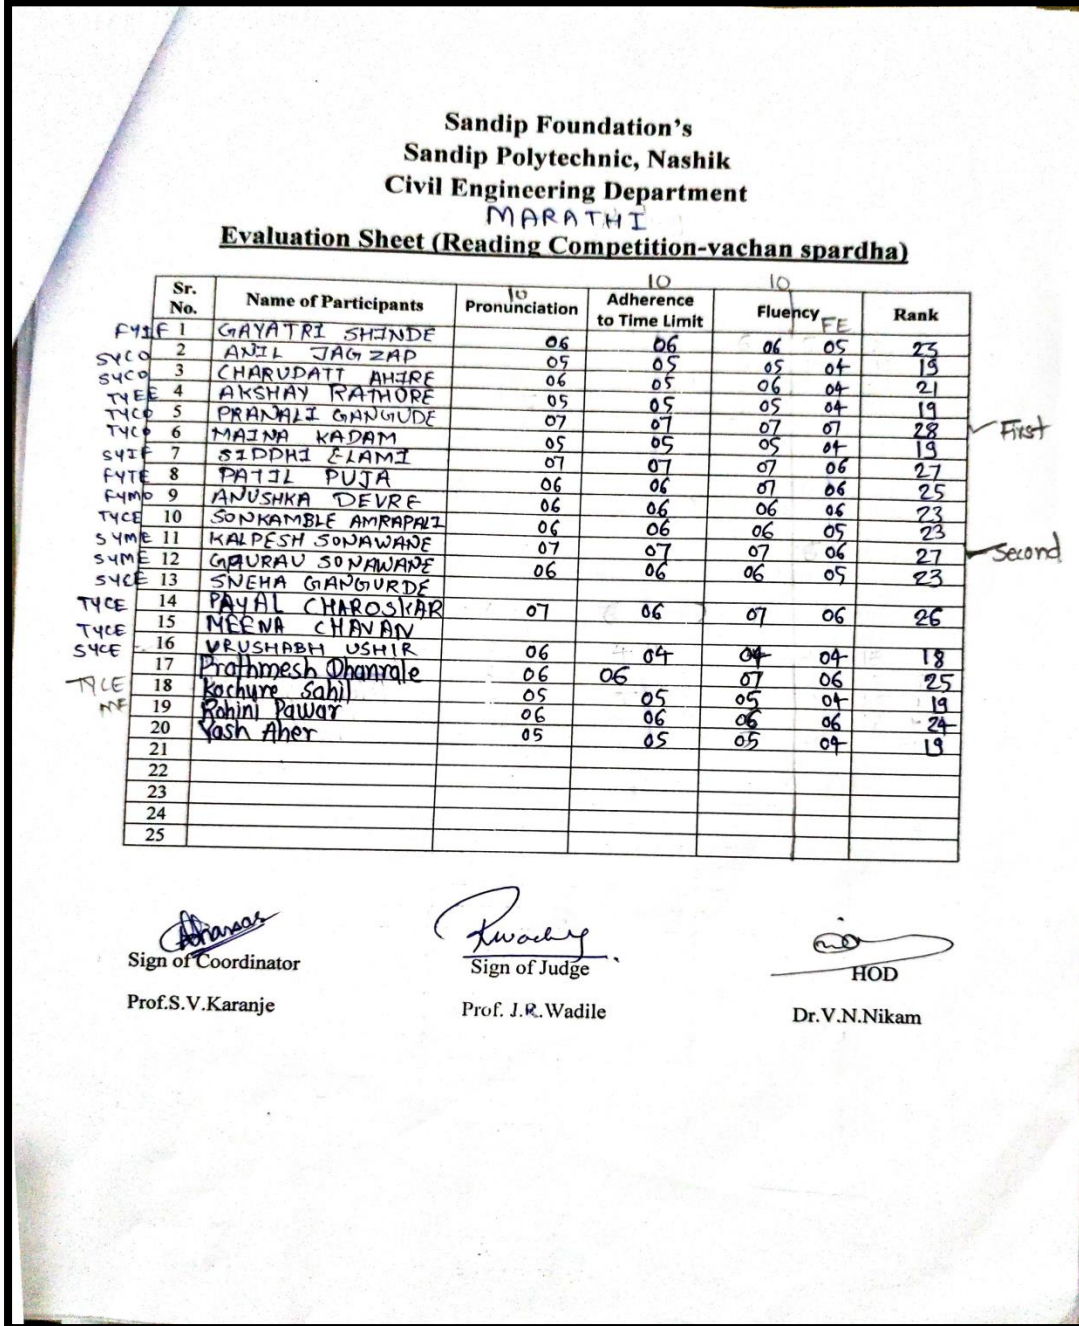 Sandip Foundation's
Sandip Polytechnic, Nashik
Civil Engineering Department
MARATHI
Evaluation Sheet (Reading Competition-vachan spardha)
Sr. No. Name of Participants 10 Pronunciation 10 Adherence to Time Limit 10 Fluency FE Rank
FYIF 1 GAYATRI SHINDE 06 06 06 05 23
SYCO 2 ANIL JAGZAP 05 05 05 04 19
SYCO 3 CHARUDATT AHIRE 06 05 06 04 21
TYEE 4 AKSHAY RATHORE 05 05 05 04 19
TYCO 5 PRANALI GANGUDE 07 07 07 07 28 First
TYCO 6 MAINA KADAM 05 05 05 04 19
SYIF 7 SIDDHI ELAMI 07 07 07 06 27
FYTE 8 PATIL PUJA 06 06 07 06 25
FYMO 9 ANUSHKA DEVRE 06 06 06 06 23
TYCE 10 SONKAMBLE AMRAPALI 06 06 06 05 23
SYME 11 KALPESH SONAWANE 07 07 07 06 27 Second
SYME 12 GAURAV SONAWANE 06 06 06 05 23
SYCE 13 SNEHA GANGURDE
TYCE 14 PAYAL CHAROSKAR 07 06 07 06 26
TYCE 15 MEENA CHAVAN
SYCE 16 VRUSHABH USHIR 06 04 04 04 18
17 Prathmesh Dhanrale 06 06 07 06 25
TYCE 18 Kachure Sahil 05 05 05 04 19
ME 19 Rohini Pawar 06 06 06 06 24
20 Yash Aher 05 05 05 04 19
21
22
23
24
25
Sign of Coordinator Sign of Judge HOD
Prof.S.V.Karanje Prof. J.R.Wadile Dr.V.N.Nikam